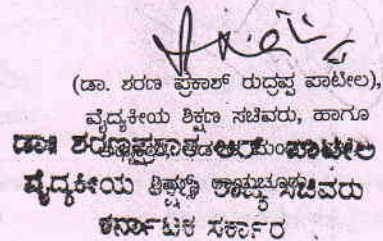 (ಡಾ. ಶರಣ ಪ್ರಕಾಶ್ ರುದ್ರಪ್ಪ ಪಾಟೀಲ),
ವೈದ್ಯಕೀಯ ಶಿಕ್ಷಣ ಸಚಿವರು, ಹಾಗೂ
ಡಾ॥ ಶರಣಪ್ರಕಾಶ ಆರ್ ಪಾಟೀಲ
ವೈದ್ಯಕೀಯ ಸಚಿವರು
ಕರ್ನಾಟಕ ಸರ್ಕಾರ